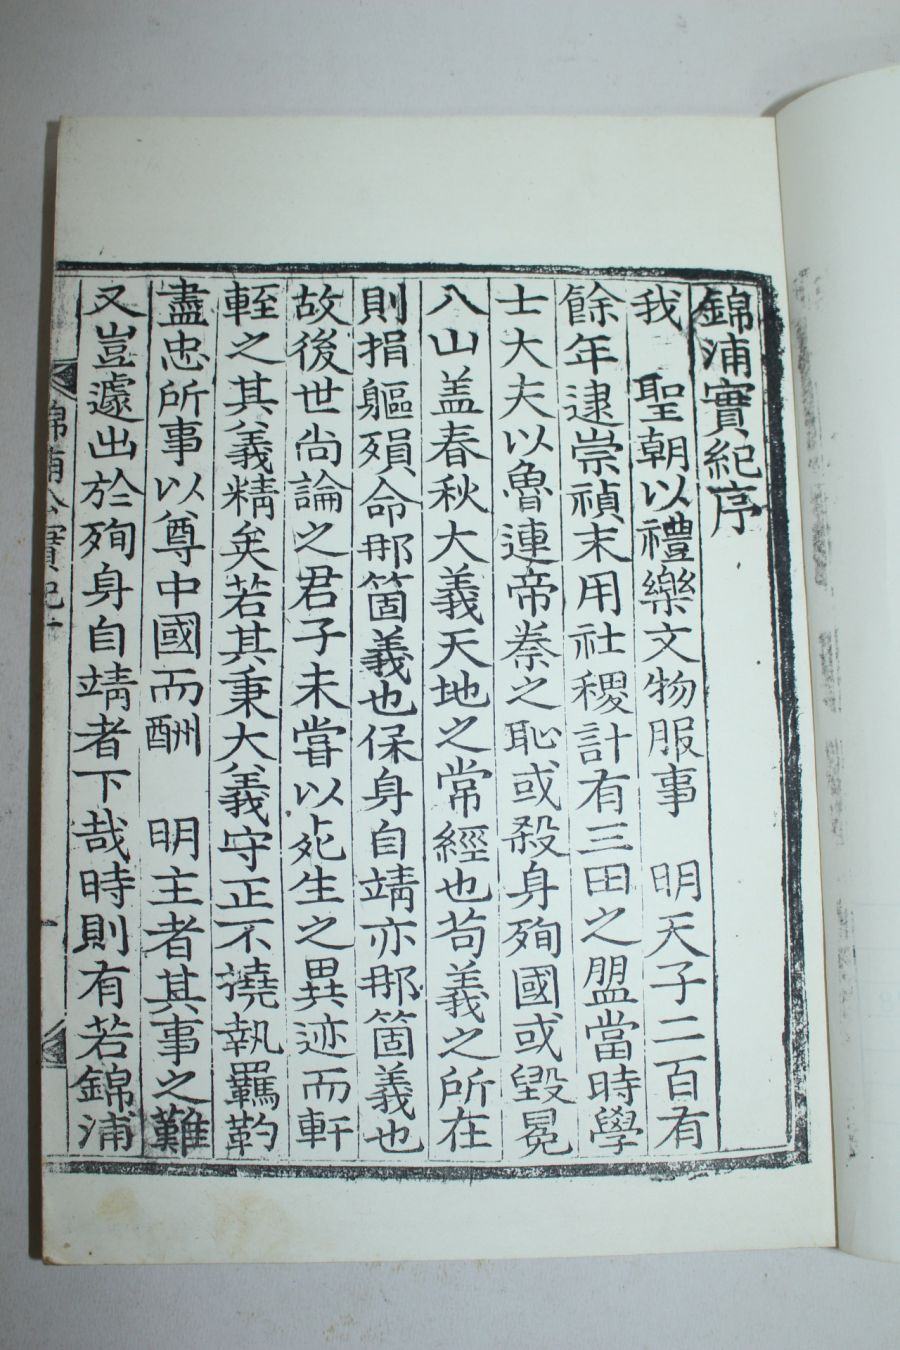 錦浦實紀序
我 聖朝以禮樂文物服事 明天子二百有
餘年逮崇禎末用社稷計有三田之盟當時學
士大夫以魯連帝秦之恥或殺身殉國或毀冕
入山盖春秋大義天地之常經也苟義之所在
則捐軀殞命那箇義也保身自靖亦那箇義也
故後世尙論之君子未嘗以死生之異迹而軒
輊之其義精矣若其秉大義守正不撓執羈靮
盡忠所事以尊中國而酬 明主者其事之難
又豈遽出於殉身自靖者下哉時則有若錦浦
錦浦公實紀